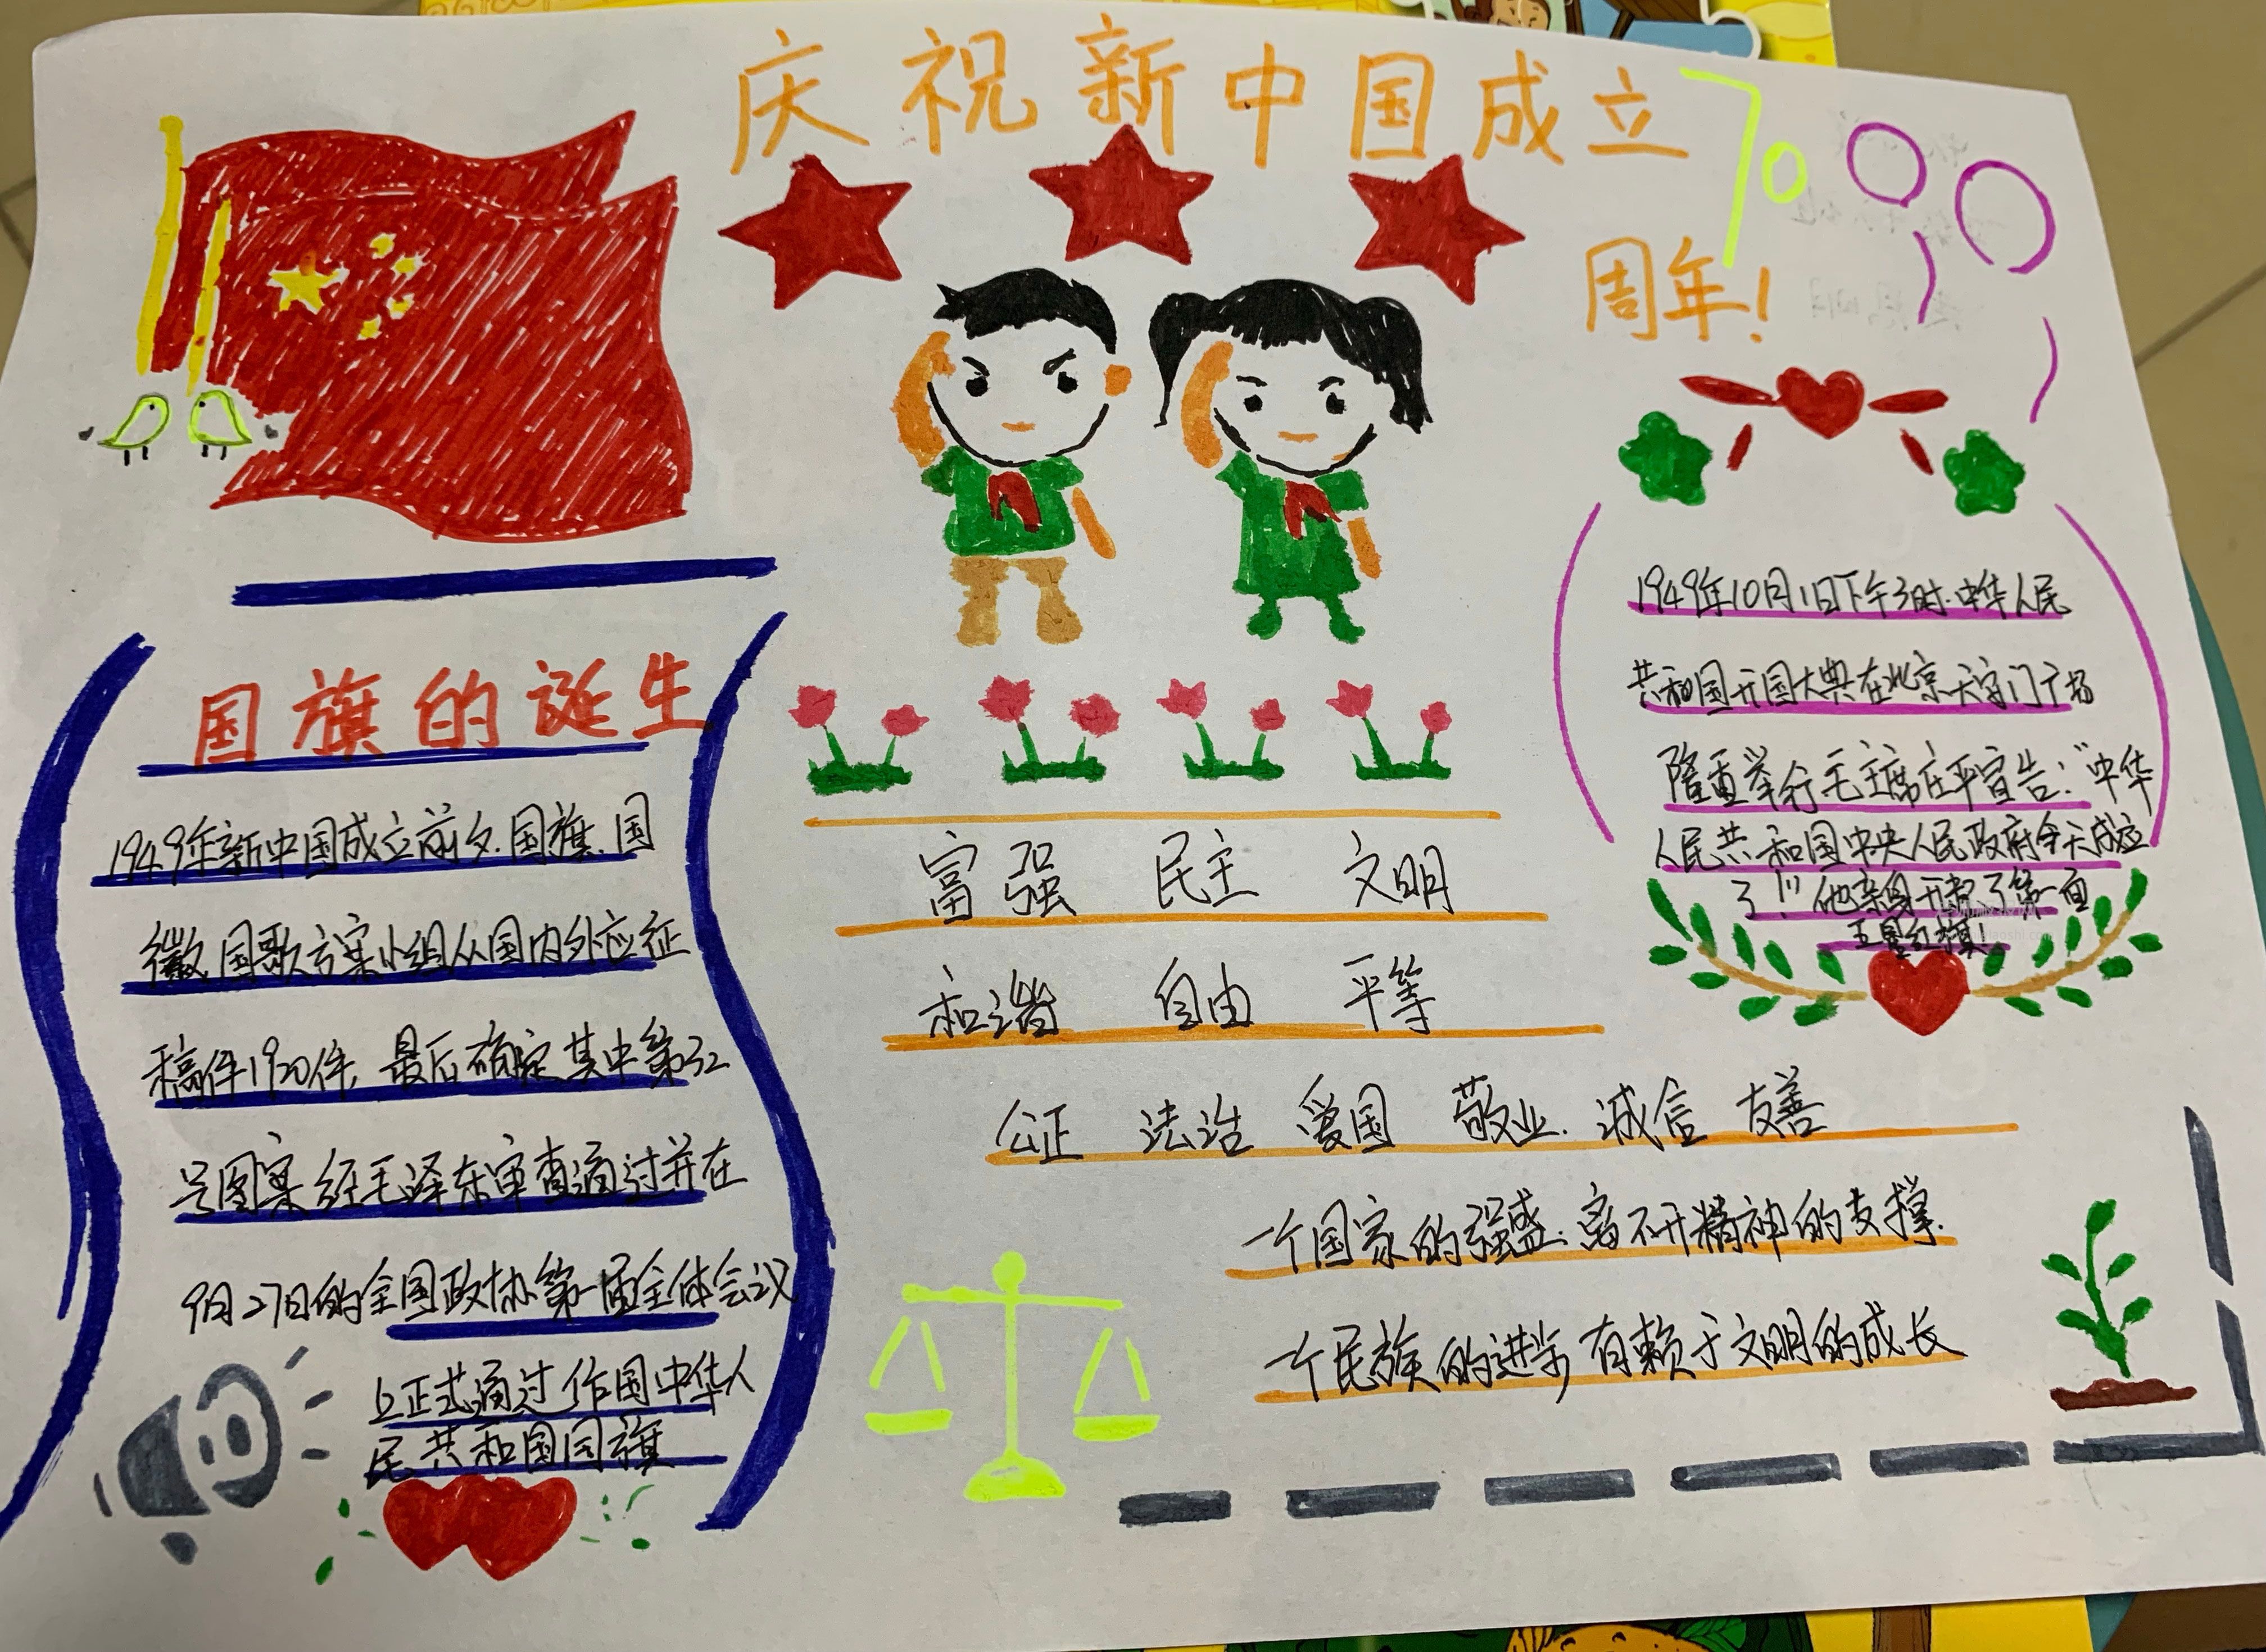 庆祝新中国成立70
周年!
国旗的诞生
1949年新中国成立前夕.国旗.国
徽国歌方案小组从国内外应征
稿件1920件,最后确定其中第32
号图案经毛泽东审查通过并在
9月27日的全国政协第一届全体会议
上正式通过作国中华人
民共和国国旗
富强 民主 文明
和谐 自由 平等
公正 法治 爱国 敬业.诚信 友善
一个国家的强盛.离不开精神的支撑.
一个民族的进步有赖于文明的成长
1949年10月1日下午3时.中华人民
共和国开国大典在北京天安门广场
隆重举行毛主席庄平宣告:"中华
人民共和国中央人民政府今天成立
了!"他亲自开起了第一面
五星红旗!